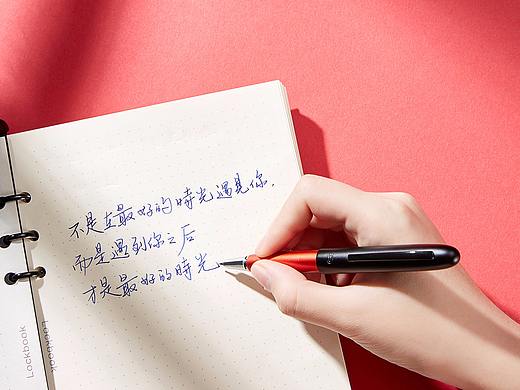 不是在最好的時光遇見你.
而是遇到你之后
才是最好的時光
Lockbook
Lockbook